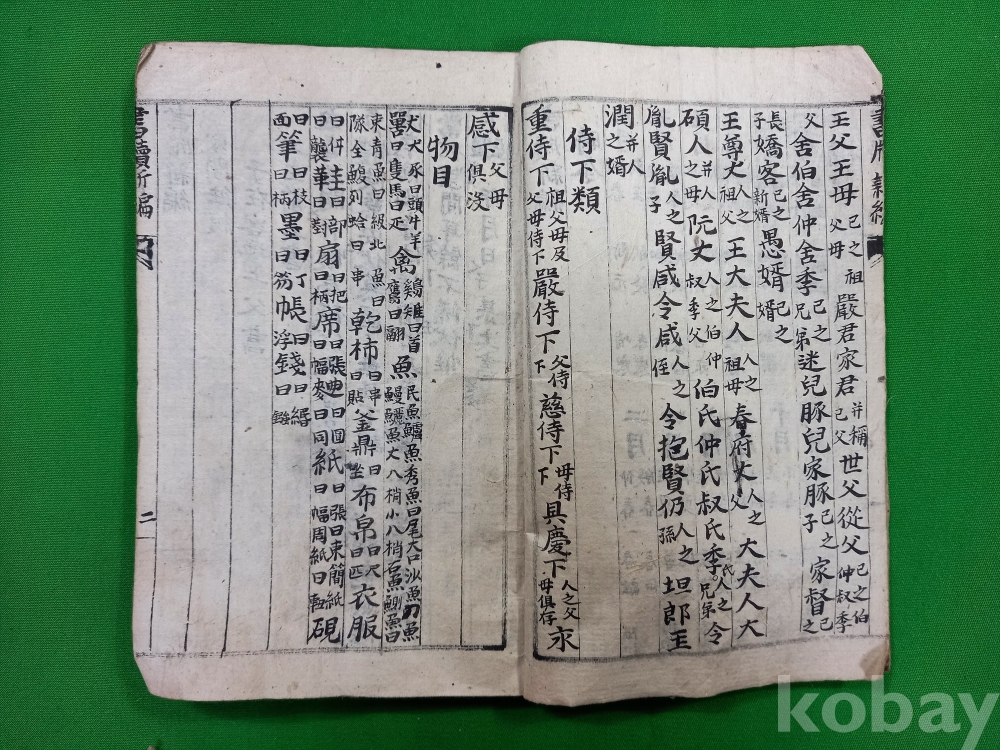 王父王母 己之祖父母 嚴君家君 并稱己父 世父從父 己之伯仲叔季
父 舍伯舍仲舍季 己之兄弟 迷兒豚兒家豚 己之子 家督 己之
長子 嬌客 己之新婿 愚婿 己之婿
王尊丈 人之祖父 王大夫人 人之祖母 春府丈 人之父 大夫人大
碩人 并人之母 阮丈 人之伯仲叔季父 伯氏仲氏叔氏季氏 人之兄弟 令
胤賢胤 人之子 賢咸令咸 人之侄 令抱賢仍 人之孫 坦郎玉
潤 并人之婿
侍下類
重侍下 祖父母及父母侍下 嚴侍下 父侍下 慈侍下 母侍下 具慶下 人之父母俱存 永
感下 父母俱沒
物目
犬 豕曰頭牛羊 禽 鷄雉曰首鷹曰翮 魚 民魚鱸魚秀魚曰尾大口沙魚刀魚
獸曰隻馬曰疋 鰻鱺魚丈八梢小八梢石魚鯽魚曰
東青魚曰級北魚曰 乾柿曰串曰貼 釜鼎 布帛曰尺曰匹 衣服
隊全鰒列蛤曰串
曰件 圭曰部 扇曰把曰柄 席曰張曰幅 紙曰張曰束簡紙曰幅周紙曰軸 硯
曰面 筆曰枝曰柄 墨曰丁曰笏 帳曰浮 錢曰緡曰鏹
書牘新編
二
kobay